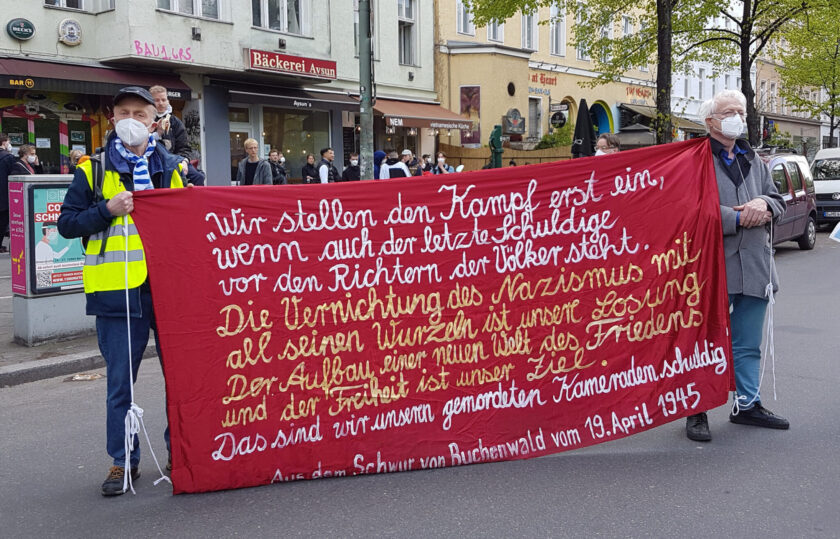 BECK'S
BAU1.GRS
Bäckerei Aysun
BAR 11
Aysun's
NEM
vietnamesische Küche
at Heart
„Wir stellen den Kampf erst ein,
wenn auch der letzte Schuldige
vor den Richtern der Völker steht.
Die Vernichtung des Nazismus mit
all seinen Wurzeln ist unsere Losung
Der Aufbau einer neuen Welt des Friedens
und der Freiheit ist unser Ziel.
Das sind wir unseren gemordeten Kameraden schuldig
Aus dem Schwur von Buchenwald vom 19. April 1945